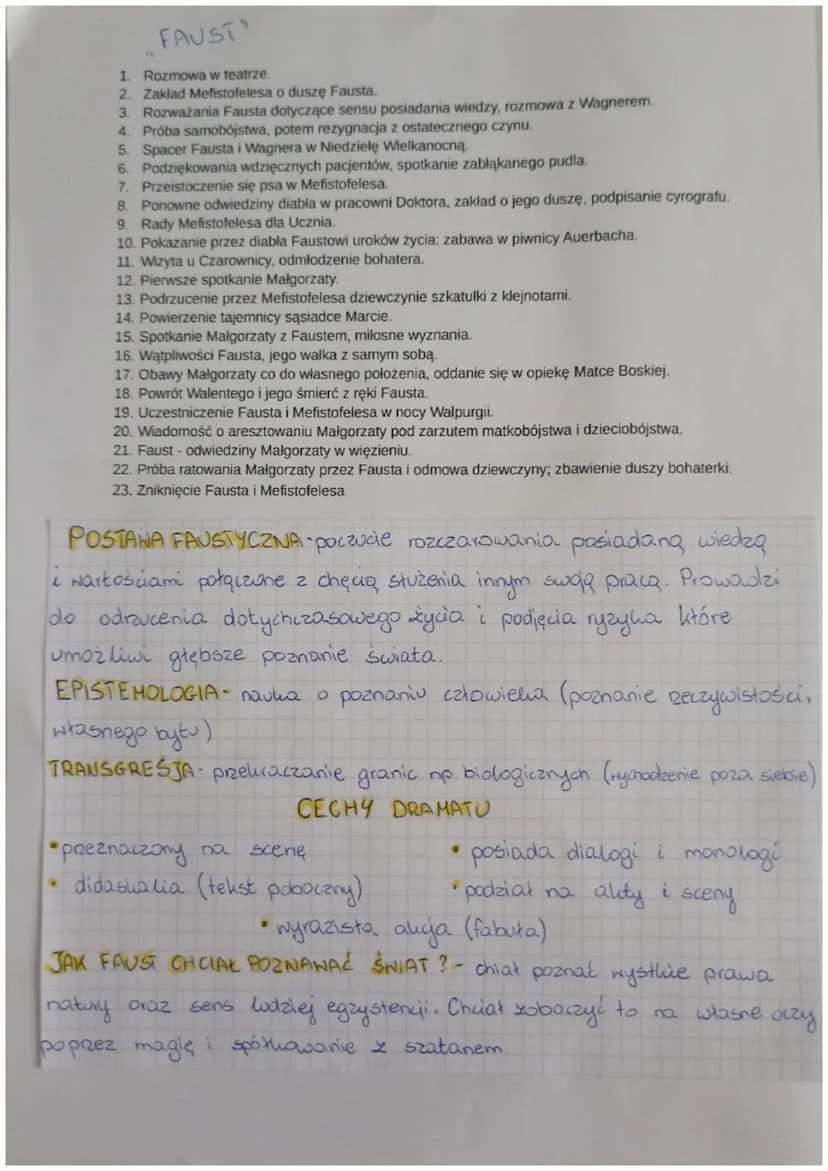 "FAUST"
1. Rozmowa w teatrze.
2. Zakład Mefistofelesa o duszę Fausta.
3. Rozważania Fausta dotyczące sensu posiadania wiedzy, rozmowa z Wagnerem.
4. Próba samobójstwa, potem rezygnacja z ostatecznego czynu.
5. Spacer Fausta i Wagnera w Niedzielę Wielkanocną.
6. Podziękowania wdzięcznych pacjentów, spotkanie zabłąkanego pudla.
7. Przeistoczenie się psa w Mefistofelesa.
8. Ponowne odwiedziny diabła w pracowni Doktora, zakład o jego duszę, podpisanie cyrografu.
9. Rady Mefistofelesa dla Ucznia.
10. Pokazanie przez diabła Faustowi uroków życia: zabawa w piwnicy Auerbacha.
11. Wizyta u Czarownicy, odmłodzenie bohatera.
12. Pierwsze spotkanie Małgorzaty.
13. Podrzucenie przez Mefistofelesa dziewczynie szkatułki z klejnotami.
14. Powierzenie tajemnicy sąsiadce Marcie.
15. Spotkanie Małgorzaty z Faustem, miłosne wyznania.
16. Wątpliwości Fausta, jego walka z samym sobą.
17. Obawy Małgorzaty co do własnego położenia, oddanie się w opiekę Matce Boskiej.
18. Powrót Walentego i jego śmierć z ręki Fausta.
19. Uczestniczenie Fausta i Mefistofelesa w nocy Walpurgii.
20. Wiadomość o aresztowaniu Małgorzaty pod zarzutem matkobójstwa i dzieciobójstwa.
21. Faust - odwiedziny Małgorzaty w więzieniu.
22. Próba ratowania Małgorzaty przez Fausta i odmowa dziewczyny; zbawienie duszy bohaterki.
23. Zniknięcie Fausta i Mefistofelesa
POSTAWA FAUSTYCZNA - poczucie rozczarowania posiadaną wiedzą
i wartościami połączone z chęcią służenia innym swoją pracą. Prowadzi
do odrzucenia dotychczasowego życia i podjęcia ryzyka które
umożliwi głębsze poznanie świata.
EPISTEMOLOGIA - nauka o poznaniu człowieka (poznanie rzeczywistości,
własnego bytu)
TRANSGRESJA - przekraczanie granic np. biologicznych (wychodzenie poza siebie)
CECHY DRAMATU
• przeznaczony na scenę • posiada dialogi i monologi
• didaskalia (tekst poboczny) • podział na akty i sceny
• wyrazista akcja (fabuła)
JAK FAUST CHCIAŁ POZNAWAĆ ŚWIAT? - chiał poznać wystkie prawa
natury oraz sens ludziej egzystencji. Chciał zobaczyć to na własne oczy
poprzez magię i spółkowanie z szatanem